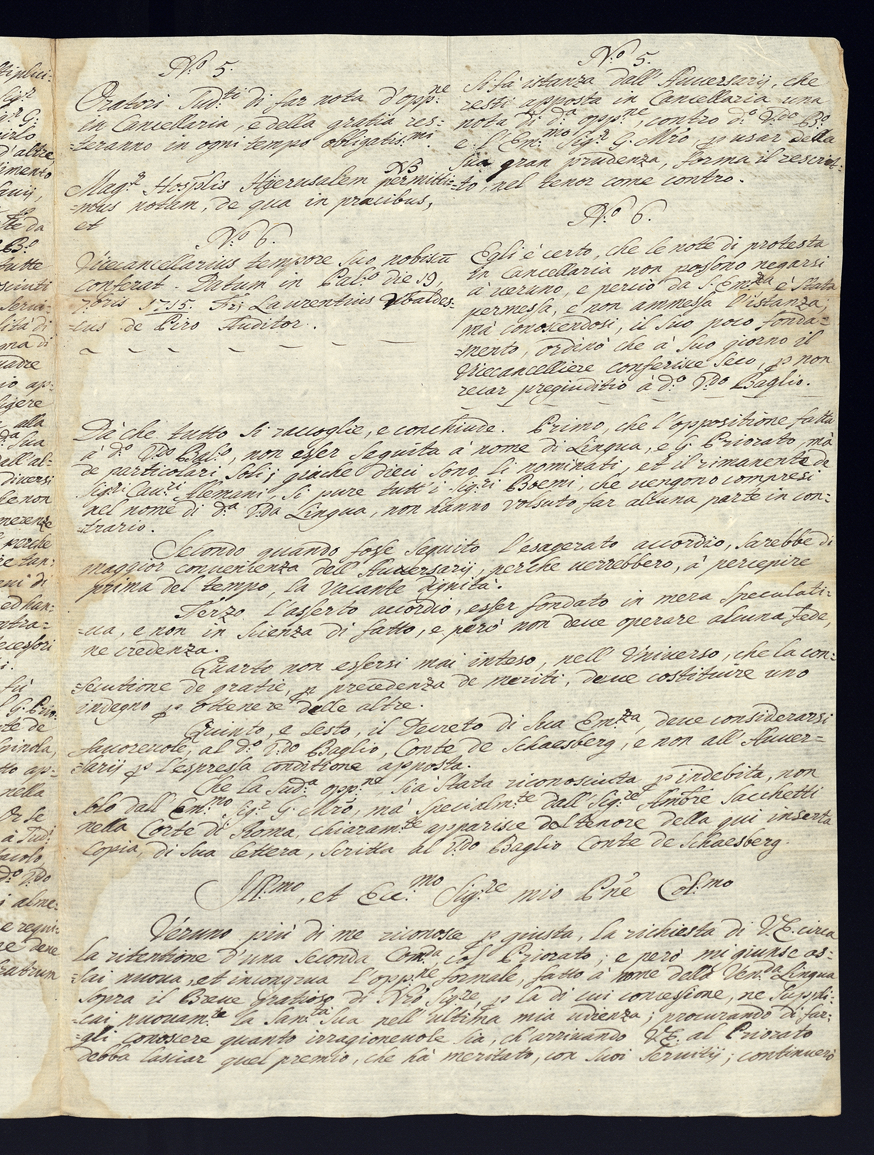 N.º 5.
Oratori Sud.ti di far nota d'opp.ne
in Cancellaria, e della gratia res=
teranno in ogni tempo obligatis.mi
Mag.r Hosp.lis Hyerusalem permitti=
=mus notam, de qua in præcibus,
et
N.º 6.
Vicecancellarius tempore suo nobiscũ
conferat. Datum in Pal.º die 19.
7bris 1715. Fr: Laurentius Vbaldes=
cus de Piro Auditor.
N.º 5.
Si fà istanza dall'Auuersarij, che
resti apposta in Cancellaria una
nota di d.a opp.ne, contro d.º V.do B.º
e l'Em.mo Sig.r G. Mro p usar della
sua gran prudenza, forma il rescrit=
=to, nel tenor come contro.
N.º 6.
Egli è certo, che le note di protesta
in Cancellaria non possono negarsi
à veruno, e perciò da S. Em.za è stata
permessa, e non ammessa l'istanza,
mà conoscendosi, il suo poco fonda=
=mento, ordinò che à suo giorno il
Vicecancelliere conferisce seco, p non
recar pregiuditio à d.º V.do Baglio.
Dà che tutto si raccoglie, e conchiude. Primo, che l'oppositione fatta
à d.º V.do Bal.º, non esser seguita à nome di Lingua, e G. Priorato, mà
de particolari soli; giache dieci sono, li nominati, et il rimanente de
Sig.ri Cau.ri Alemani, si pure tutt'i Sig.ri Boemi, che vengono compresi
nel nome di d.a V.da Lingua, non hanno volsuto far alcuna parte in con=
=trario.
Secondo quando fosse seguito l'esagerato accordio, sarebbe di
maggior convenienza dell'Auuersarij, perche verrebbero, à percepire
prima del tempo, la vacante dignità.
Terzo l'asserto accordio, esser fondato in mera speculati=
=ua, e non in scienza di fatto, e però non deve operare alcuna fede,
ne credenza.
Quarto non essersi mai inteso, nell'Vniverso, che la con=
=secutione de gratie, p precedenza de meriti, deve costituire uno
indegno p ottenere delle altre.
Quinto, e sesto, il Decreto di Sua Em.za, deve considerarsi
fauoreuole, al d.º V.do Baglio, Conte de Schaesberg, e non all'Auuer=
=sarij p l'espressa conditione apposta.
Che la sud.a opp.ne sia stata riconosciuta p indebita, non
solo dall'Em.mo Sig.r G. Mro, mà specialm.te dall'Sig.re Ambre Sacchetti
nella Corte di Roma, chiaram.te apparisce dal tenore della qui inserta
copia, di sua lettera, scritta al V.do Baglio Conte de Schaesberg.
Ill.mo, et Ecc.mo Sig.re mio P.ne Col.mo
Veruno più di me riconosce p giusta, la richiesta di V. E. circa
la ritentione d'una seconda Com.da, col' Priorato; e però mi giunse as=
=sai nuova, et incongrua l'opp.ne formale, fatto à nome della Ven.da Lingua
sopra il Breve gratioso di Nrò Sig.re, p la di cui concessione, ne suppli=
=cai nuouam.te la San.tà Sua nell'ultima mia udienza; procurando di far=
=gli conoscere quanto irragionevole sia, ch'arriuando V. E. al Priorato
debba lasciar quel premio, che hà meritato, con suoi servitij; continuerò